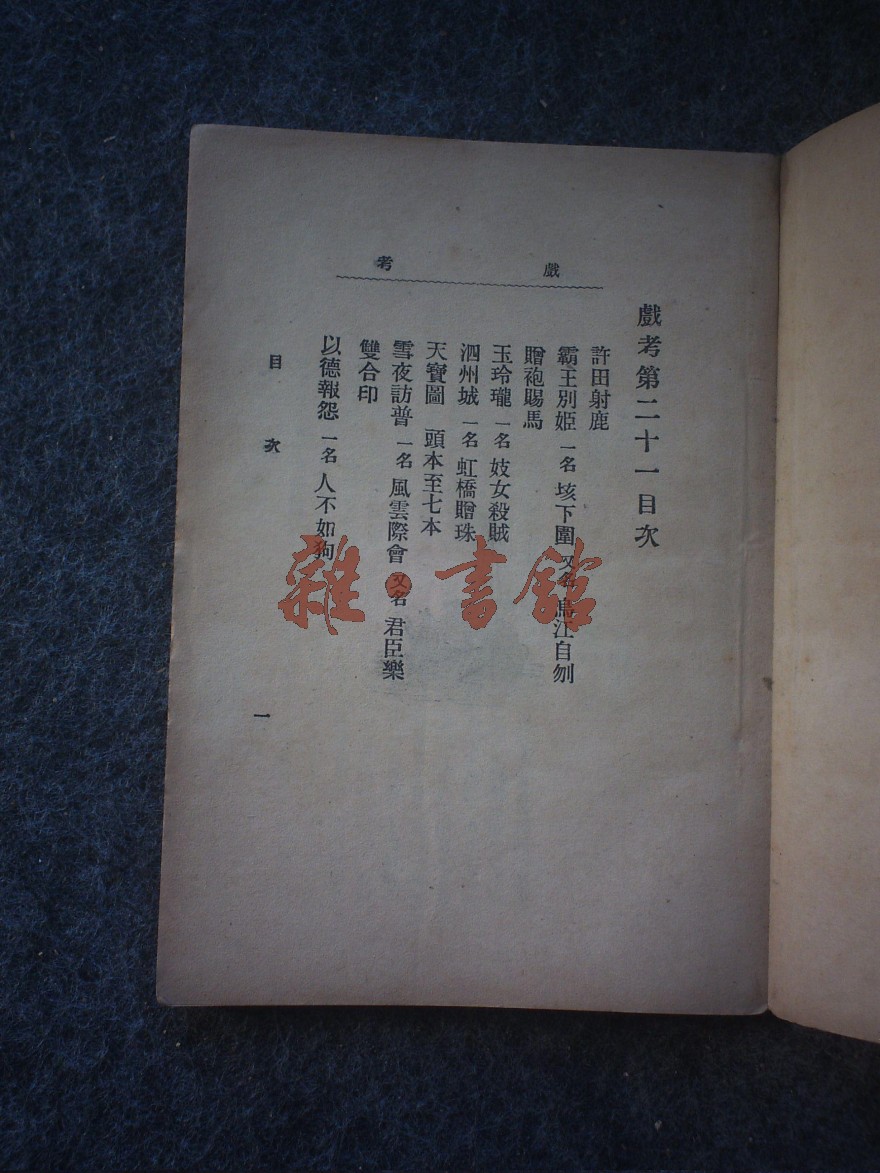 戲考
戲考第二十一目次
許田射鹿
霸王別姬 一名 垓下圍 又名 烏江自刎
贈袍賜馬
玉玲瓏 一名 妓女殺賊
泗州城 一名 虹橋贈珠
天寶圖 頭本至七本
雪夜訪普 一名 風雲際會 又名 君臣樂
雙合印
以德報怨 一名 人不如狗
目次
一
雜·書館